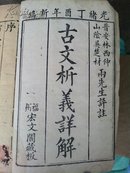 光緒丁酉年新鐫
晉安林西仲
山陰吳楚材
兩先生評註
古文析義詳解
福州
宏文閣藏板
序